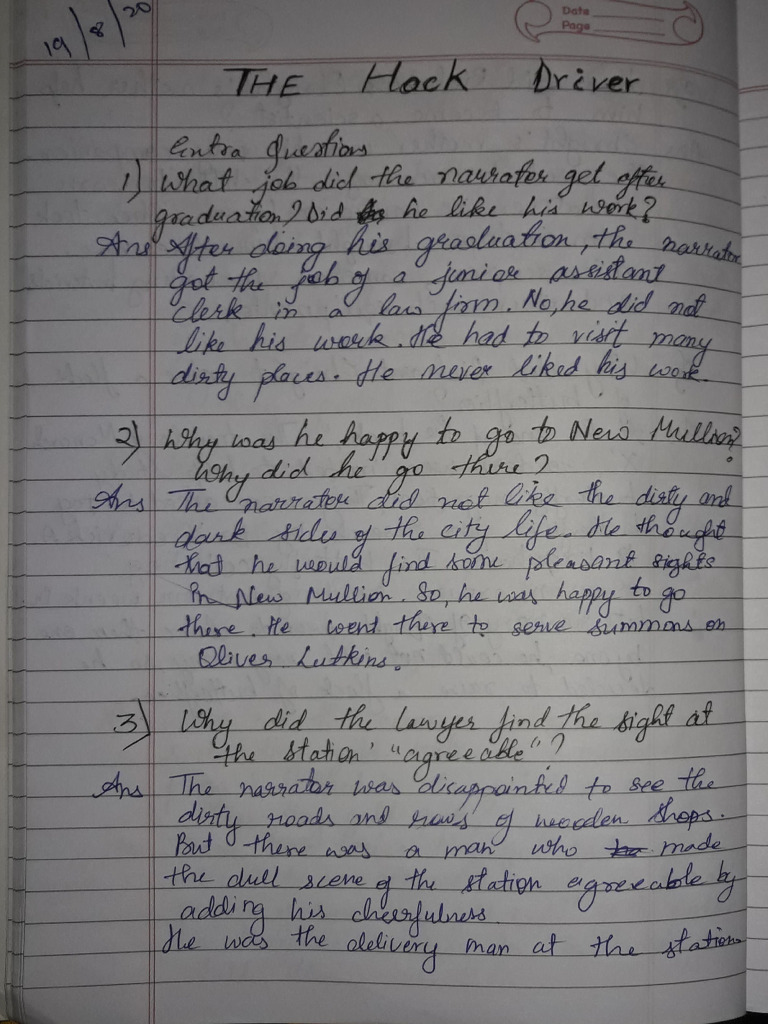 19/8/20
Date
Page
THE Hack Driver
Extra Questions
1) What job did the narrator get after
graduation? Did he like his work?
Ans After doing his graduation, the narrator
got the job of a junior assistant
clerk in a law firm. No, he did not
like his work. He had to visit many
dirty places. He never liked his work.
2) Why was he happy to go to New Mullion?
Why did he go there?
Ans The narrator did not like the dirty and
dark sides of the city life. He thought
that he would find some pleasant sights
in New Mullion. So, he was happy to go
there. He went there to serve summons on
Oliver Lutkins.
3) Why did the lawyer find the sight at
the station' "agreeable"?
Ans The narrator was disappointed to see the
dirty roads and rows of wooden shops.
But there was a man who made
the dull scene of the station agreeable by
adding his cheerfulness.
He was the delivery man at the station